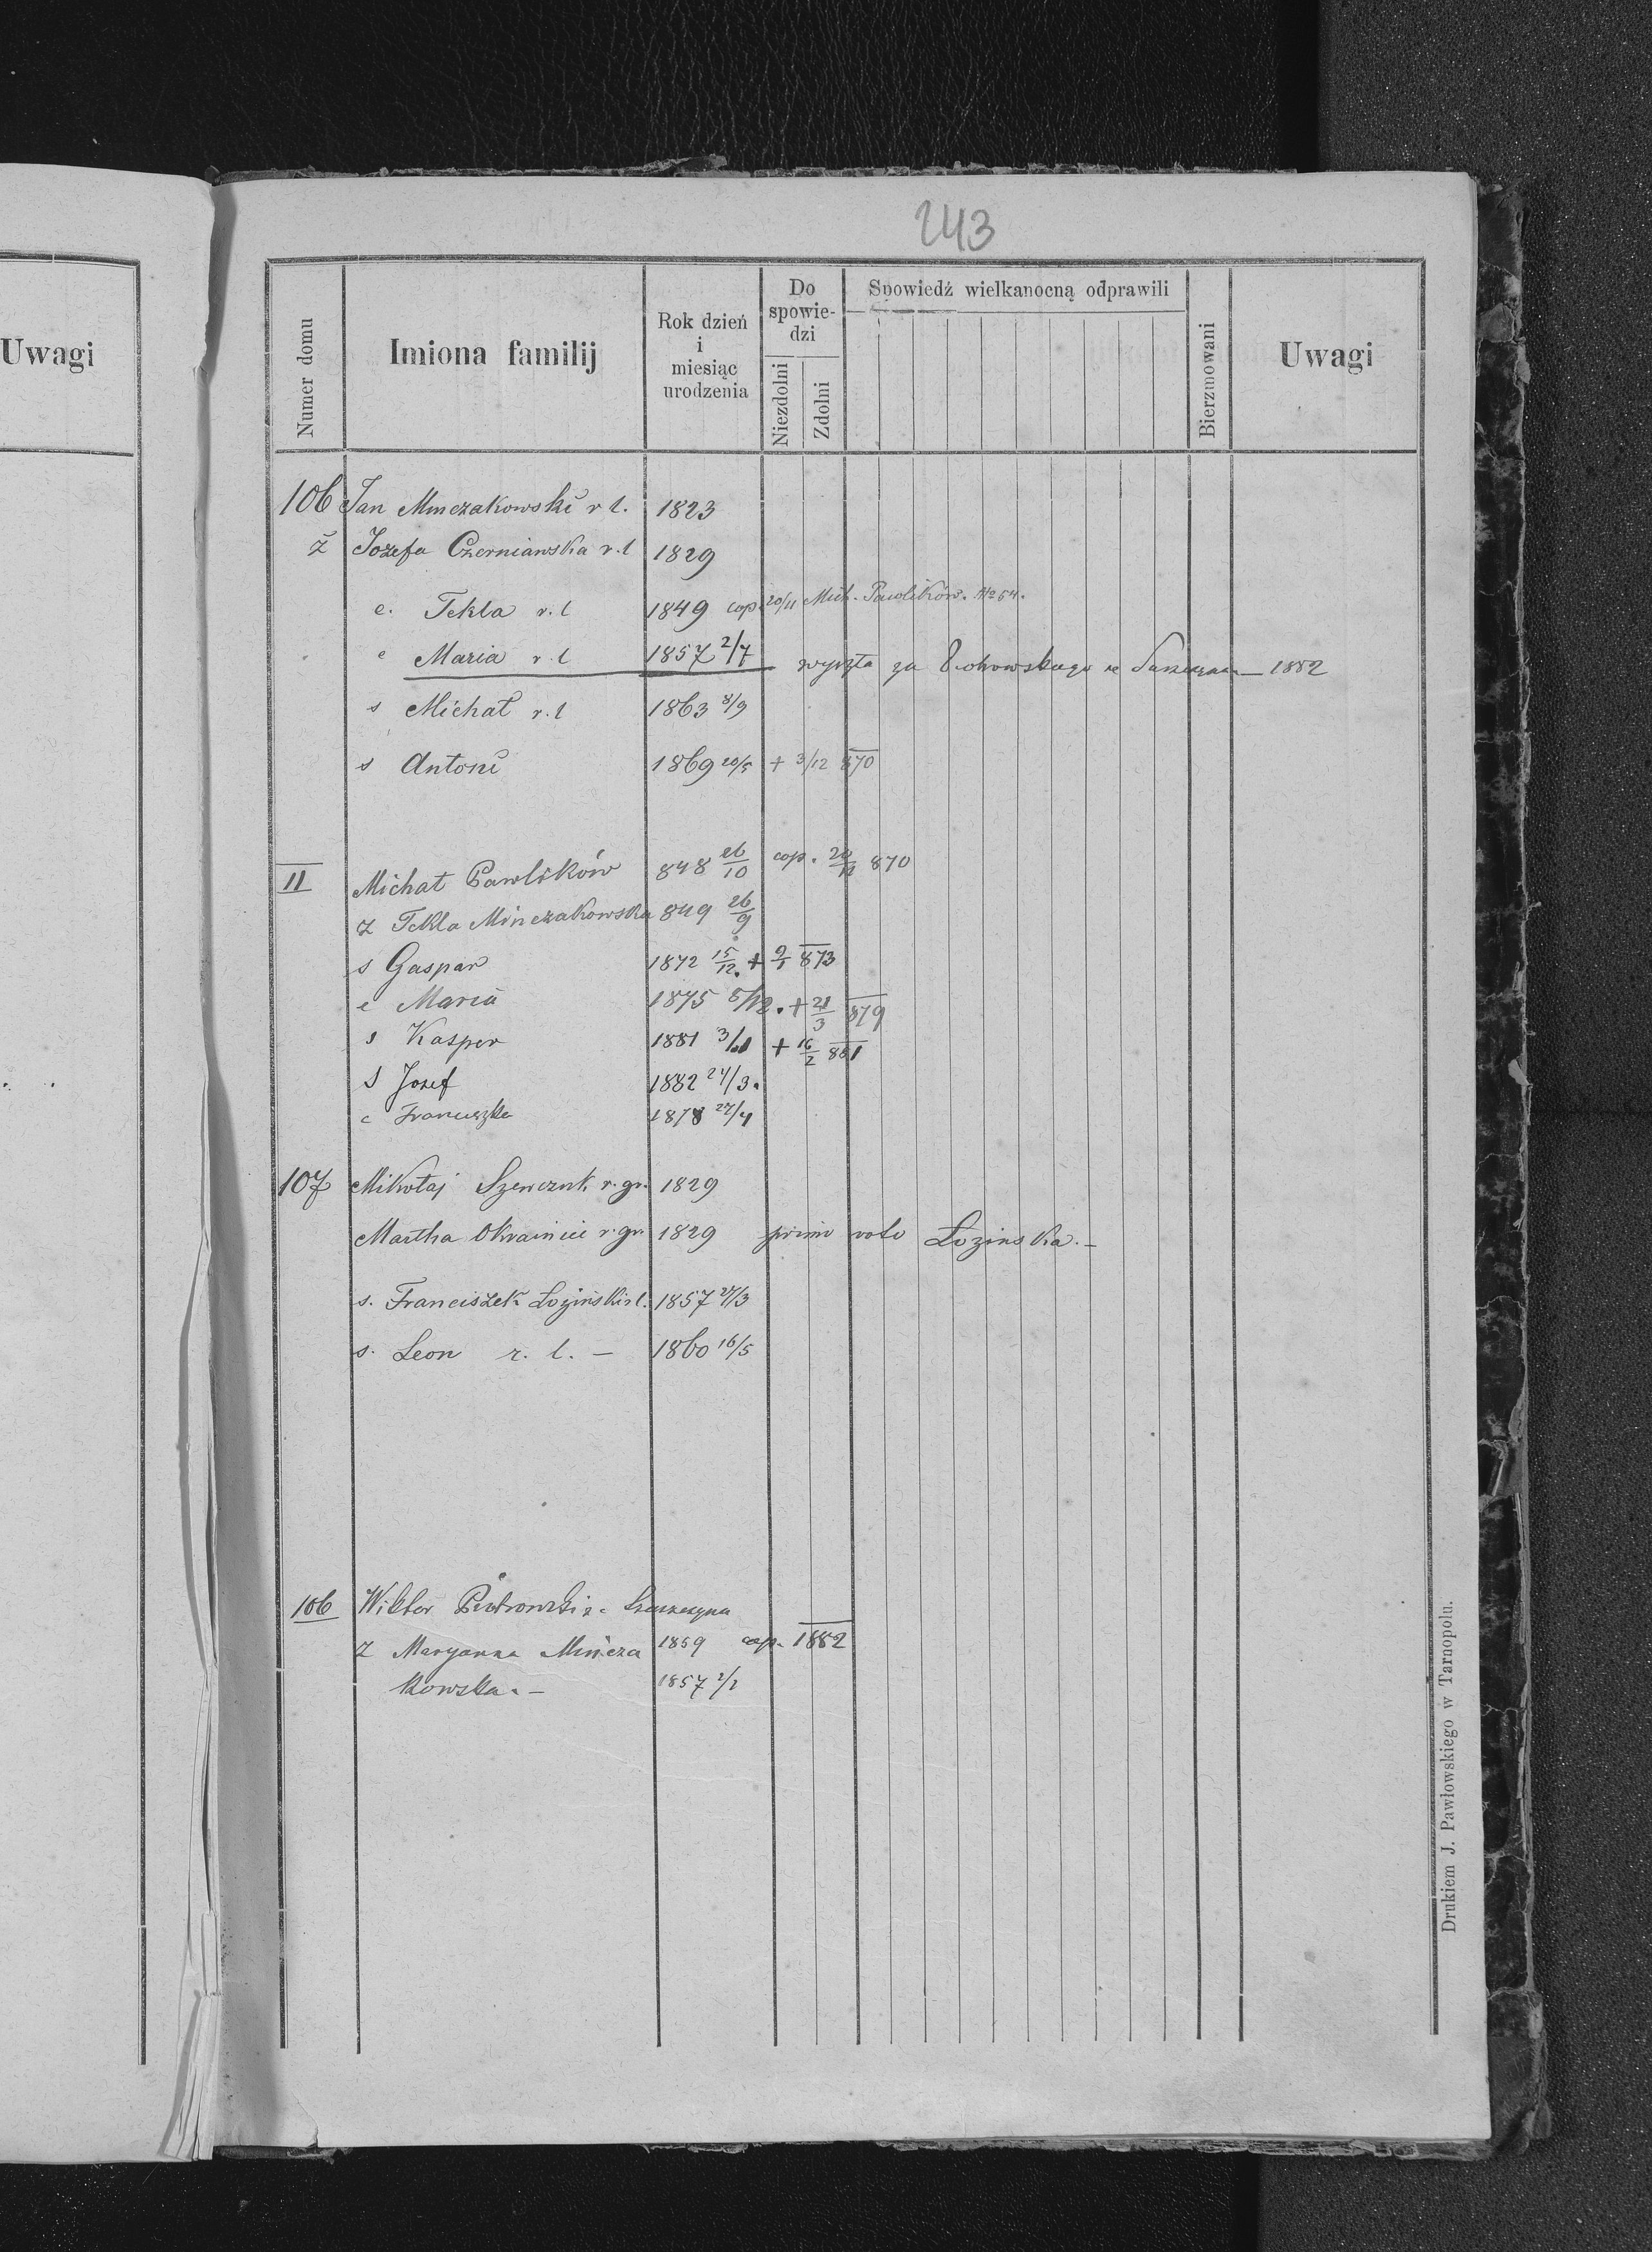 243
Uwagi
Numer domu
Imiona familij
Rok dzień
i
miesiąc
urodzenia
Do
spowie-
dzi
Niezdolni
Zdolni
Spowiedź wielkanocną odprawili
Bierzmowani
Uwagi
106 Jan Minczakowski r l. 1823
ż Jozefa Czerniawska r. l 1829
c. Tekla r. l 1849 cop. 20/11 Mich. Pawlików. No 54.
c Maria r. l 1857 2/7 wyszła za 1882
s Michał r. l 1863 8/9
s Antoni 1869 20/5 + 3/12 870
II Michał Pawlików 848 26/10 cop. 20/11 870
ż Tekla Minczakowska 849 26/9
s Gaspar 1872 15/12. + 9/1 873
c Maria 1875 8/12. + 21/3 879
s Kasper 1881 3/1 + 16/2 881
S Jozef 1882 24/3.
c Franciszka 1878 27/4
107 Mikołaj Szewczuk r. gr. 1829
Martha Okrainiec r. gr. 1829 primo voto Łozinska. –
s. Franciszek Łoziński r l. 1857 27/3
s. Leon r. l. – 1860 16/5
106 Wiktor Piotrowski z
ż Maryanna Mincza 1859 cop. 1882
kowska. – 1857 2/7
Drukiem J. Pawłowskiego w Tarnopolu.